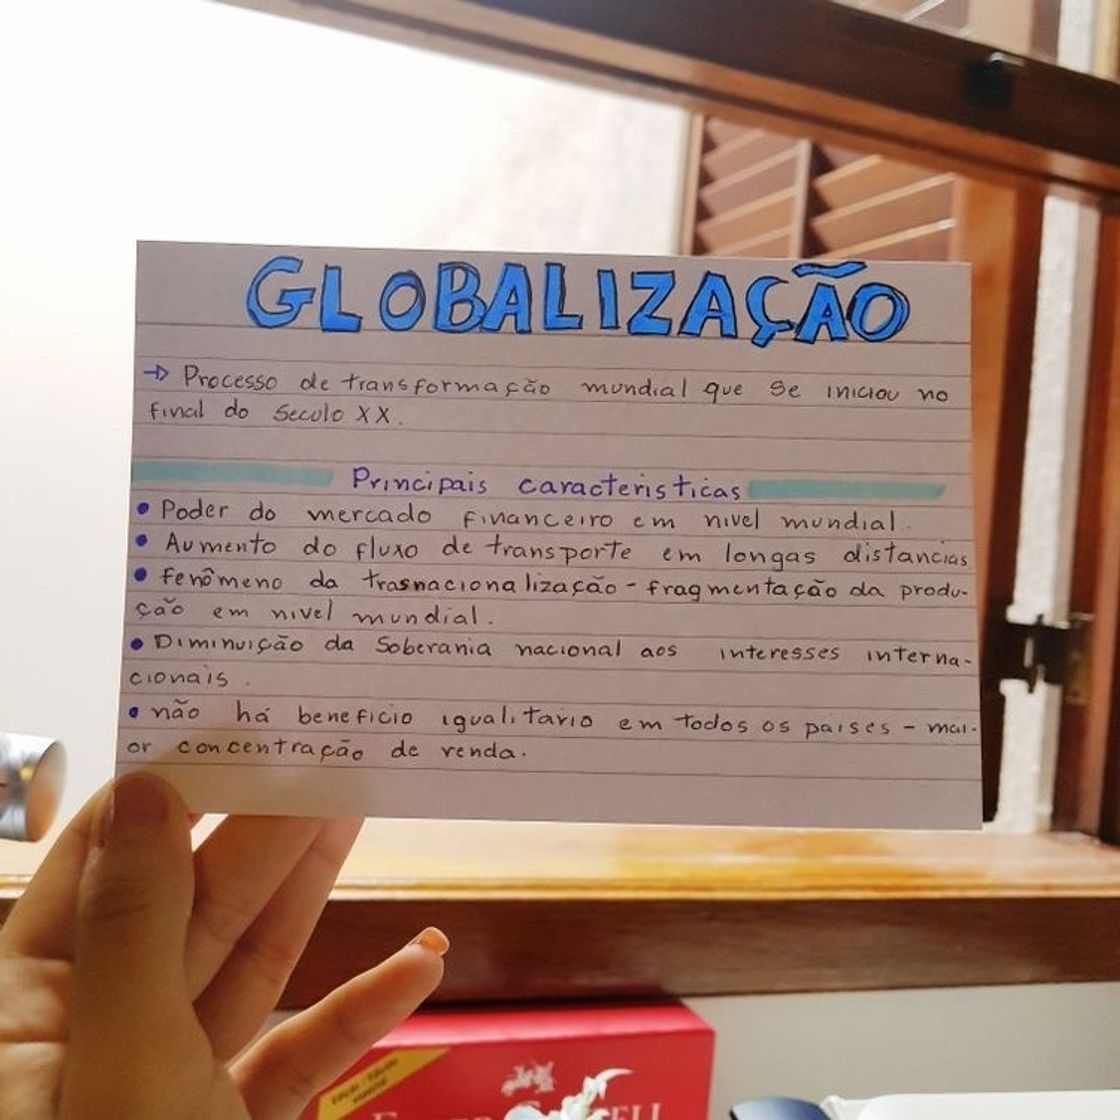 GLOBALIZAÇÃO
→ Processo de transformação mundial que se iniciou no
final do Seculo XX.
Principais caracteristicas
• Poder do mercado financeiro em nivel mundial.
• Aumento do fluxo de transporte em longas distancias
• fenômeno da trasnacionalização - fragmentação da produ-
ção em nivel mundial.
• Diminuição da Soberania nacional aos interesses interna-
cionais.
• não há beneficio igualitário em todos os países - mai-
or concentração de renda.